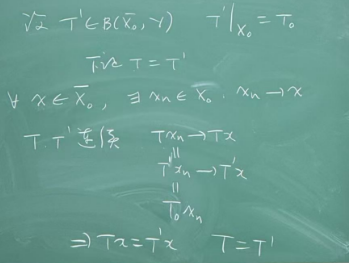 设 T' ∈ B(X̄₀, Y)  T'|_{X₀} = T₀
下证 T = T'
∀ x ∈ X̄₀, ∃ xₙ ∈ X₀. xₙ → x
T. T' 连续  Txₙ → Tx
||
T'xₙ → T'x
||
T₀xₙ
⇒ Tx = T'x  T = T'